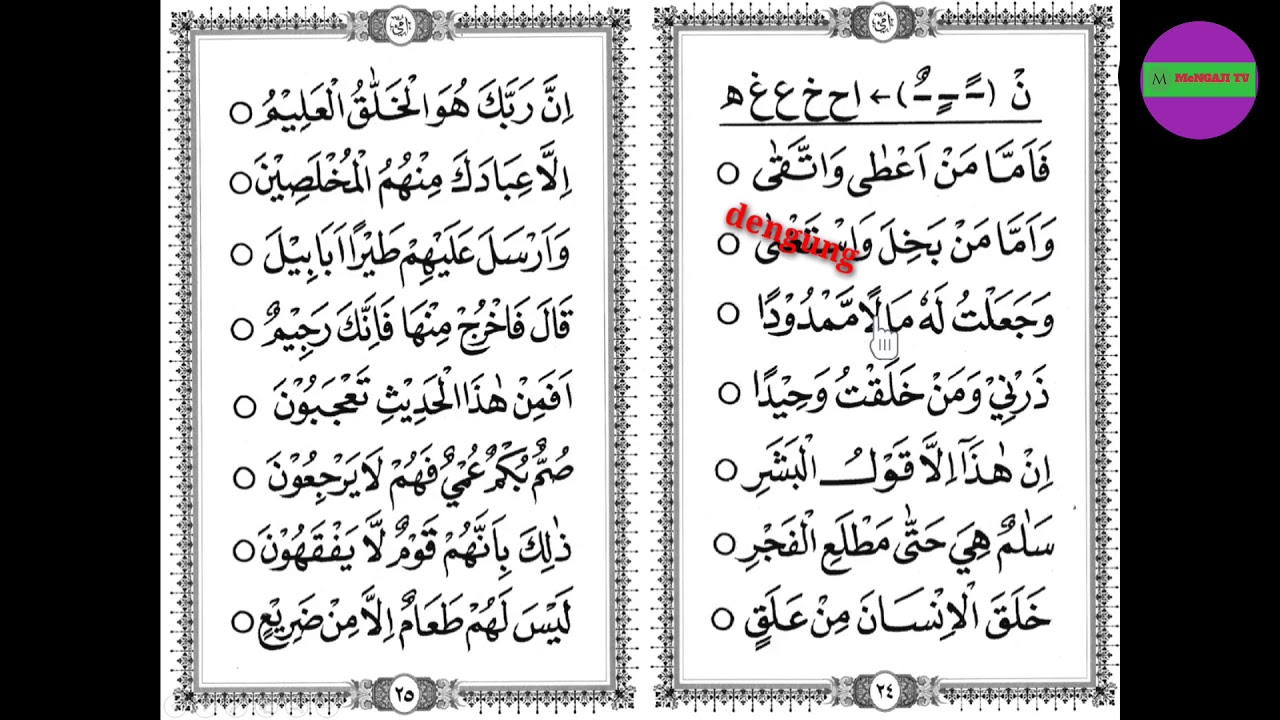 نْ (ـًـ ـٍـ ـٌـ) ← ا ح خ ع غ ه
فَاَمَّا مَنْ اَعْطٰى وَاتَّقٰى ○
وَاَمَّا مَنْ بَخِلَ وَاسْتَغْنٰى ○
dengung
وَجَعَلْتُ لَهٗ مَالًا مَّمْدُوْدًا ○
ذَرْنِيْ وَمَنْ خَلَقْتُ وَحِيْدًا ○
اِنْ هٰذَآ اِلَّا قَوْلُ الْبَشَرِ ○
سَلٰمٌ هِيَ حَتّٰى مَطْلَعِ الْفَجْرِ ○
خَلَقَ الْاِنْسَانَ مِنْ عَلَقٍ ○
٢٤
اِنَّ رَبَّكَ هُوَ الْخَلّٰقُ الْعَلِيْمُ ○
اِلَّا عِبَادَكَ مِنْهُمُ الْمُخْلَصِيْنَ ○
وَاَرْسَلَ عَلَيْهِمْ طَيْرًا اَبَابِيْلَ ○
قَالَ فَاخْرُجْ مِنْهَا فَاِنَّكَ رَجِيْمٌ ○
اَفَمِنْ هٰذَا الْحَدِيْثِ تَعْجَبُوْنَ ○
صُمٌّ بُكْمٌ عُمْيٌ فَهُمْ لَا يَرْجِعُوْنَ ○
ذٰلِكَ بِاَنَّهُمْ قَوْمٌ لَّا يَفْقَهُوْنَ ○
لَيْسَ لَهُمْ طَعَامٌ اِلَّا مِنْ ضَرِيْعٍ ○
٢٥
M MeNGAJI TV